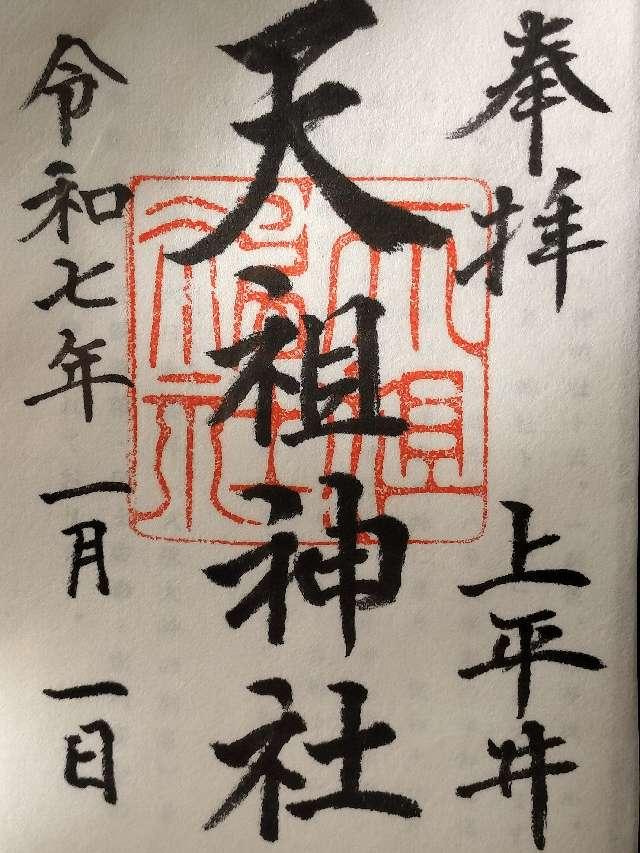 奉拝
上平井
天祖神社
令和七年一月一日